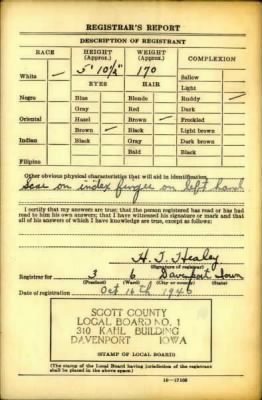 REGISTRAR'S REPORT
DESCRIPTION OF REGISTRANT
RACE HEIGHT (Approx.) WEIGHT (Approx.) COMPLEXION
5' 10½" 170
White ✓ Sallow
EYES HAIR Light
Negro Blue Blonde Ruddy ✓
Gray Red Dark
Oriental Hazel Brown ✓ Freckled
Brown ✓ Black Light brown
Indian Black Gray Dark brown
Bald Black
Filipino
Other obvious physical characteristics that will aid in identification
Scar on index finger on left hand
I certify that my answers are true; that the person registered has read or has had
read to him his own answers; that I have witnessed his signature or mark and that
all of his answers of which I have knowledge are true, except as follows:
H. J. Healey
(Signature of registrar)
Registrar for 3 6 Davenport Iowa
(Precinct) (Ward) (City or county) (State)
Date of registration Oct 16th 1940
SCOTT COUNTY
LOCAL BOARD NO. 1
310 KAHL BUILDING
DAVENPORT IOWA
(STAMP OF LOCAL BOARD)
(The stamp of the Local Board having jurisdiction of the registrant
shall be placed in the above space.)
16—17105